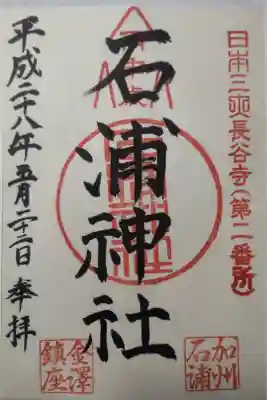 日本三大長谷寺(第二番所)
石浦神社
平成二十八年五月二十二日 奉拝
加州
石浦
金澤
鎮座